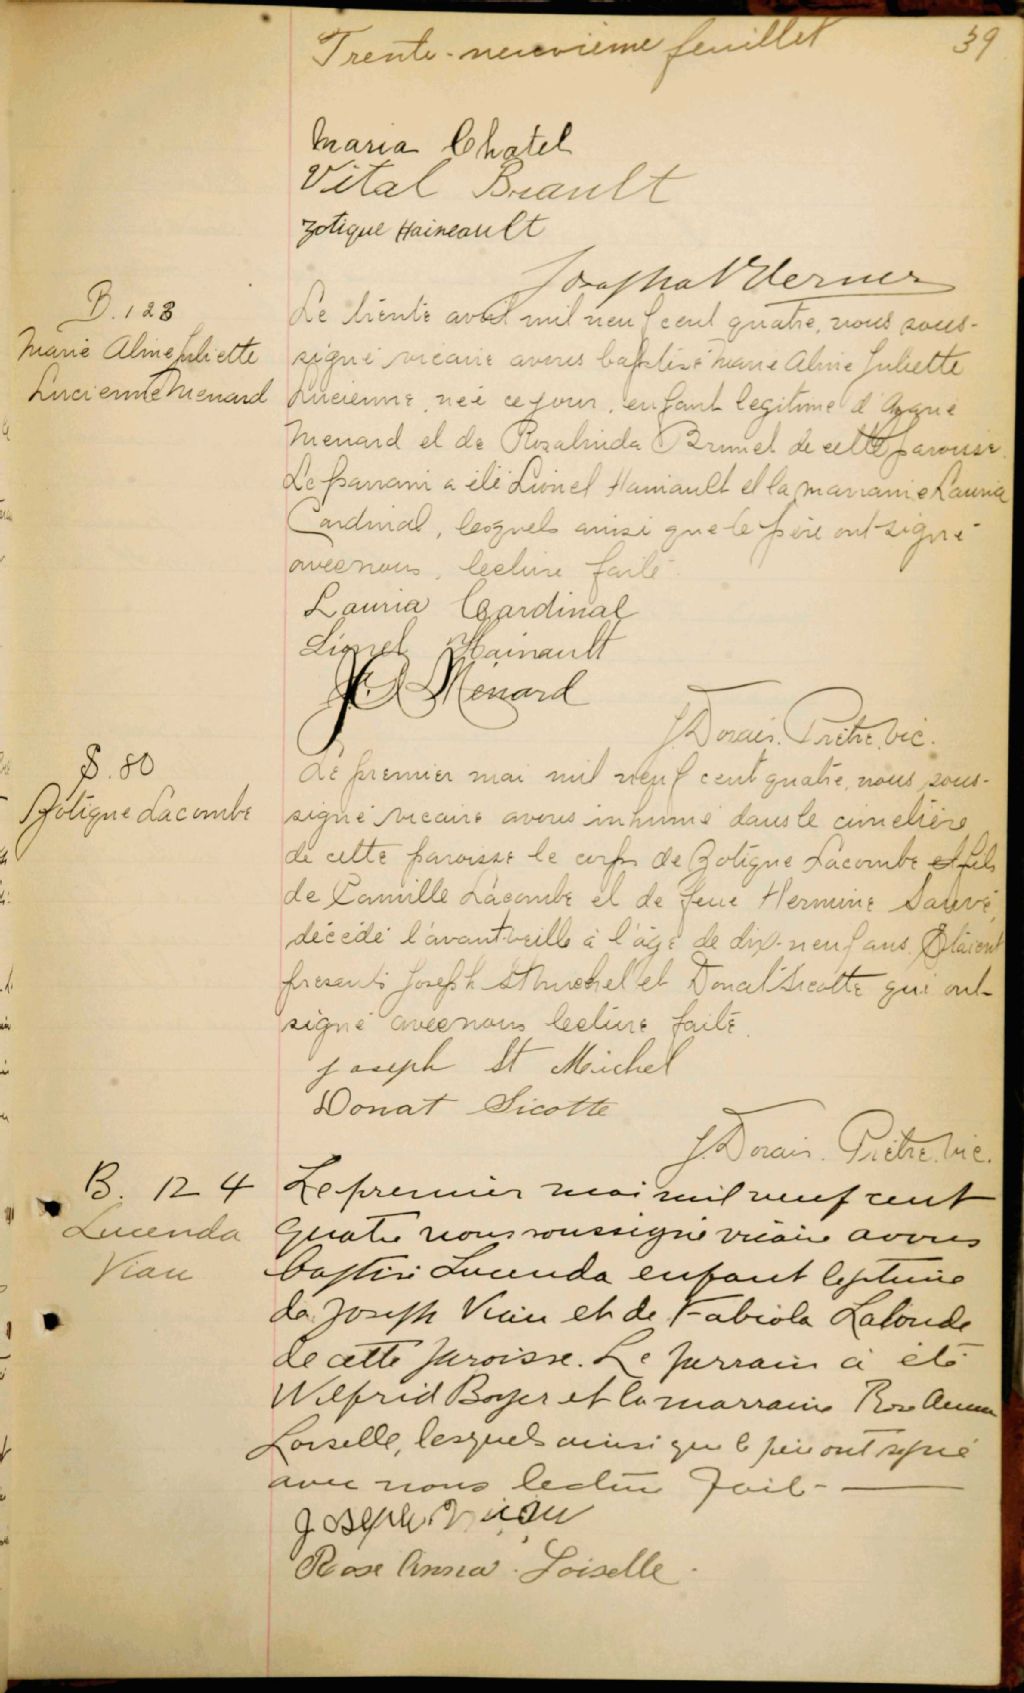 Trente-neuvième feuillet 39
Maria Chatel
Vital Breault
Zotique Haineault
B. 123
Marie Aline Juliette
Lucienne Menard
Le trente avril mil neuf cent quatre, nous sous-
signé vicaire avons baptisé Marie Aline Juliette
Lucienne, née ce jour, enfant legitime d'
Menard et de Rosalinda Brunet de cette paroisse.
Le parrain a été Lionel Hainault et la marraine Lauria
Cardinal, lesquels ainsi que le père ont signé
avec nous, lecture faite.
Lauria Cardinal
Lionel Hainault
Ménard
J. Dorais. Prêtre. vic.
S. 80
Zotique Lacombe
Le premier mai mil neuf cent quatre, nous sous-
signé vicaire avons inhumé dans le cimetière
de cette paroisse le corps de Zotique Lacombe et fils
de Camille Lacombe et de feue Hermine Sauvé,
décédé l'avant-veille à l'âge de dix-neuf ans. Etaient
présents Joseph St Michel et Donat Sicotte qui ont
signé avec nous lecture faite.
Joseph St Michel
Donat Sicotte
J. Dorais. Prêtre. vic.
B. 124
Lucenda
Viau
Le premier mai mil neuf cent
quatre nous soussigné vicaire avons
baptisé Lucenda enfant legitime
de Joseph Viau et de Fabiola Lalonde
de cette paroisse. Le parrain a été
Wilfrid Boyer et la marraine Rose Anna
Loiselle, lesquels ainsi que le père ont signé
avec nous lecture fait-
Joseph Viau
Rose Anna Loiselle.